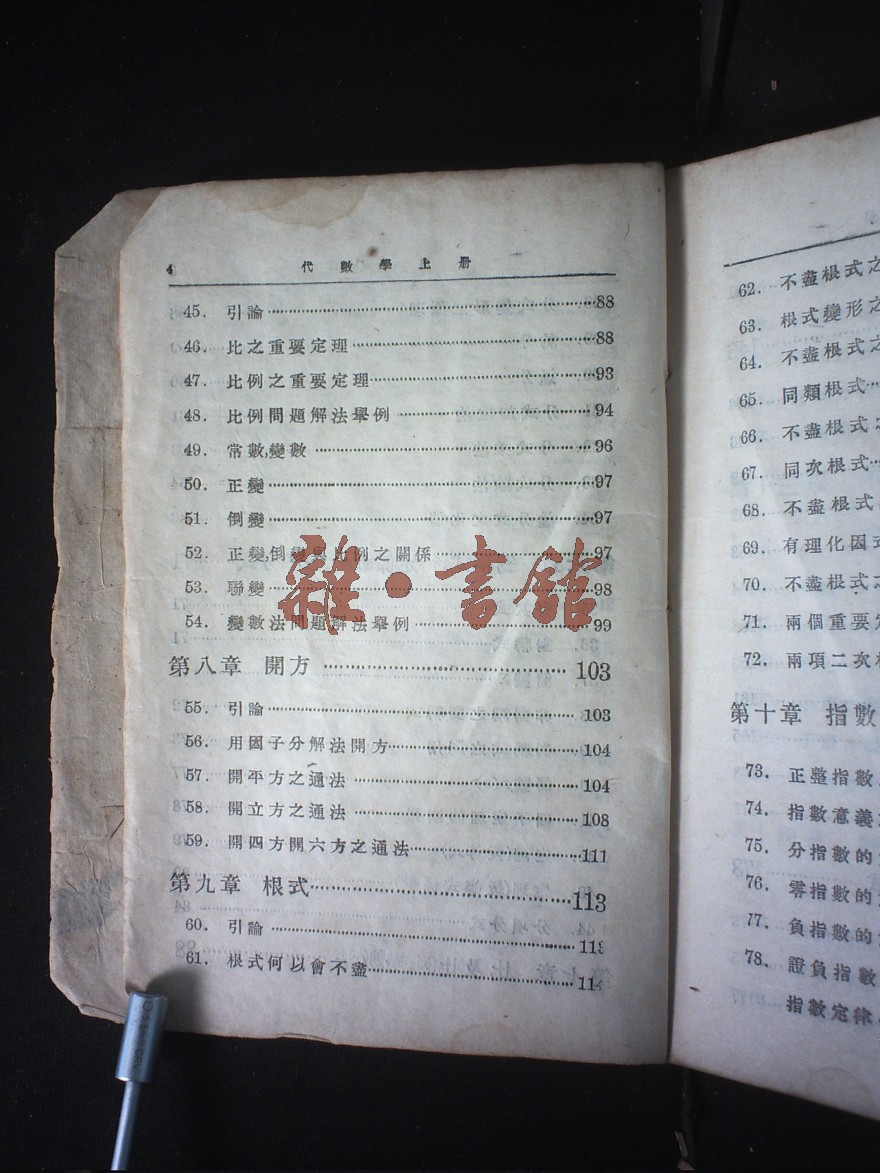 4 代數學上册
45. 引論 88
46. 比之重要定理 88
47. 比例之重要定理 93
48. 比例問題解法舉例 94
49. 常數,變數 96
50. 正變 97
51. 倒變 97
52. 正變,倒變與比例之關係 97
53. 聯變 98
54. 變數法問題解法舉例 99
第八章 開方 103
55. 引論 103
56. 用因子分解法開方 104
57. 開平方之通法 104
58. 開立方之通法 108
59. 開四方開六方之通法 111
第九章 根式 113
60. 引論 113
61. 根式何以會不盡 114
雜·書舘
62. 不盡根式之
63. 根式變形之
64. 不盡根式之
65. 同類根式
66. 不盡根式
67. 同次根式
68. 不盡根式
69. 有理化因式
70. 不盡根式之
71. 兩個重要定
72. 兩項二次根
第十章 指數
73. 正整指數
74. 指數意義
75. 分指數的
76. 零指數的
77. 負指數的
78. 證負指數
指數定律